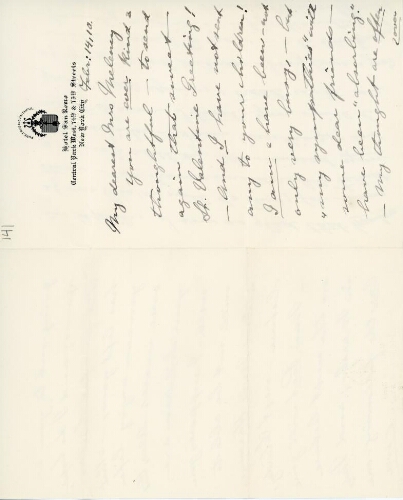 Hotel San Remo
Central Park West, 74th & 75th Streets
New York City
Febr: 14, 12.
My dearest Mrs
You are ever kind &
thoughtful — to send
again that sweet
St. Valentine Greeting!
— And I have not sent
any to my children!
I am & have been — not
only very busy, — but
"my sympathies" with
my sympathies friends —
some
have been "absorbing"
— My thought are often
141